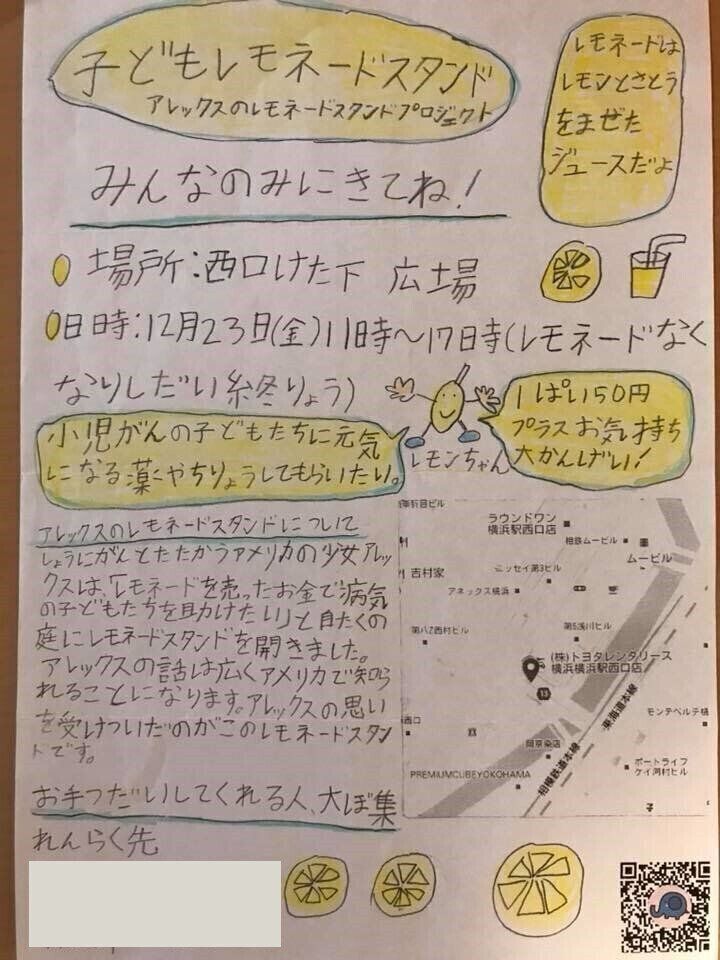 子どもレモネードスタンド
アレックスのレモネードスタンドプロジェクト
レモネードは
レモンとさとう
をまぜた
ジュースだよ
みんなのみにきてね!
場所:西口けた下 広場
日時:12月23日(金)11時〜17時(レモネードなく
なりしだい終りょう)
小児がんの子どもたちに元気
になる薬やちりょうしてもらいたい。
レモンちゃん
1ぱい50円
プラスお気持ち
大かんげい!
アレックスのレモネードスタンドについて
しょうにがんとたたかうアメリカの少女アレ
ックスは、「レモネードを売ったお金で病気
の子どもたちを助けたい」と自たくの
庭にレモネードスタンドを開きました。
アレックスの話は広くアメリカで知ら
れることになります。アレックスの思い
を受けついだのがこのレモネードスタン
ドです。
お手つだいしてくれる人、大ぼ集
れんらく先
ラウンドワン
横浜駅西口店
相鉄ムービル
ムービル
吉村家
ニッセイ第3ビル
アネックス横浜
第八Z西村ビル
第5浅川ビル
(株)トヨタレンタリース
横浜横浜駅西口店
13
東海道本線
モンテベルデ横
西口
岡京染店
PREMIUMCUBEYOKOHAMA
相模鉄道本線
ポートライフ
ケイ河村ビル